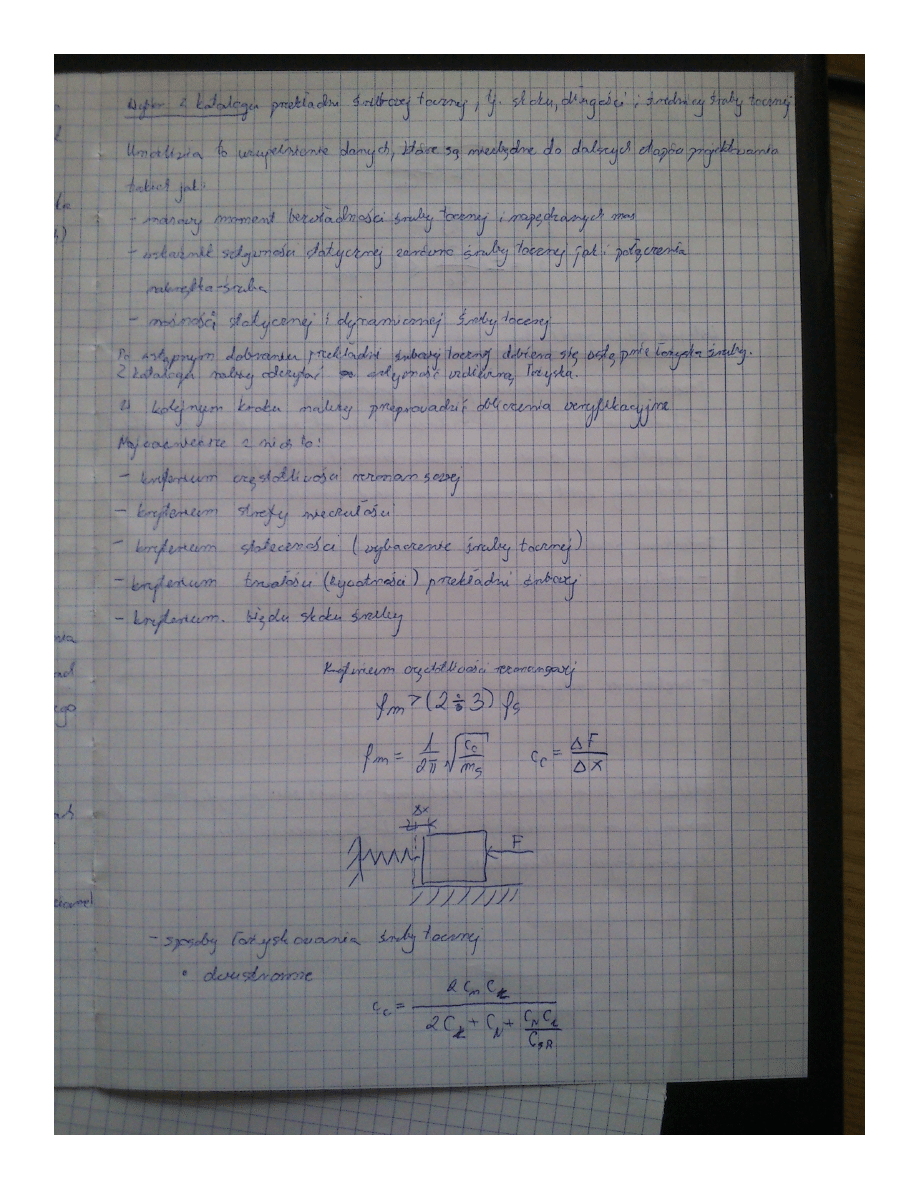 Wybór z katalogu przekładni śrubowej tocznej, tj. skoku, długości i średnicy śruby tocznej
Umożliwia to uzupełnienie danych, które są niezbędne do dalszych etapów projektowania
takich jak:
- masowy moment bezwładności śruby tocznej i napędzanych mas
- wskaźnik sztywności statycznej zarówno śruby tocznej jak i połączenia
nakrętka-śruba
- nośności statycznej i dynamicznej śruby tocznej
Po wstępnym dobraniu przekładni śrubowej tocznej dobiera się wstępnie łożyska śruby.
Z katalogu należy odczytać sztywność wzdłużną łożyska.
W kolejnym kroku należy przeprowadzić obliczenia weryfikacyjne
Najważniejsze z nich to:
- kryterium częstotliwości rezonansowej
- kryterium strefy nieczułości
- kryterium stateczności (wyboczenie śruby tocznej)
- kryterium trwałości (żywotności) przekładni śrubowej
- kryterium. błędu skoku śruby
Kryterium częstotliwości rezonansowej
fm > (2 ÷ 3) fs
fm = 1/2π √(cc/ms) cc = ΔF/Δx
Δx
F
- sposoby łożyskowania śruby tocznej
• dwustronne
cc = 2 Cn CŁ / (2CŁ + CN + CN CŁ/CŚR)